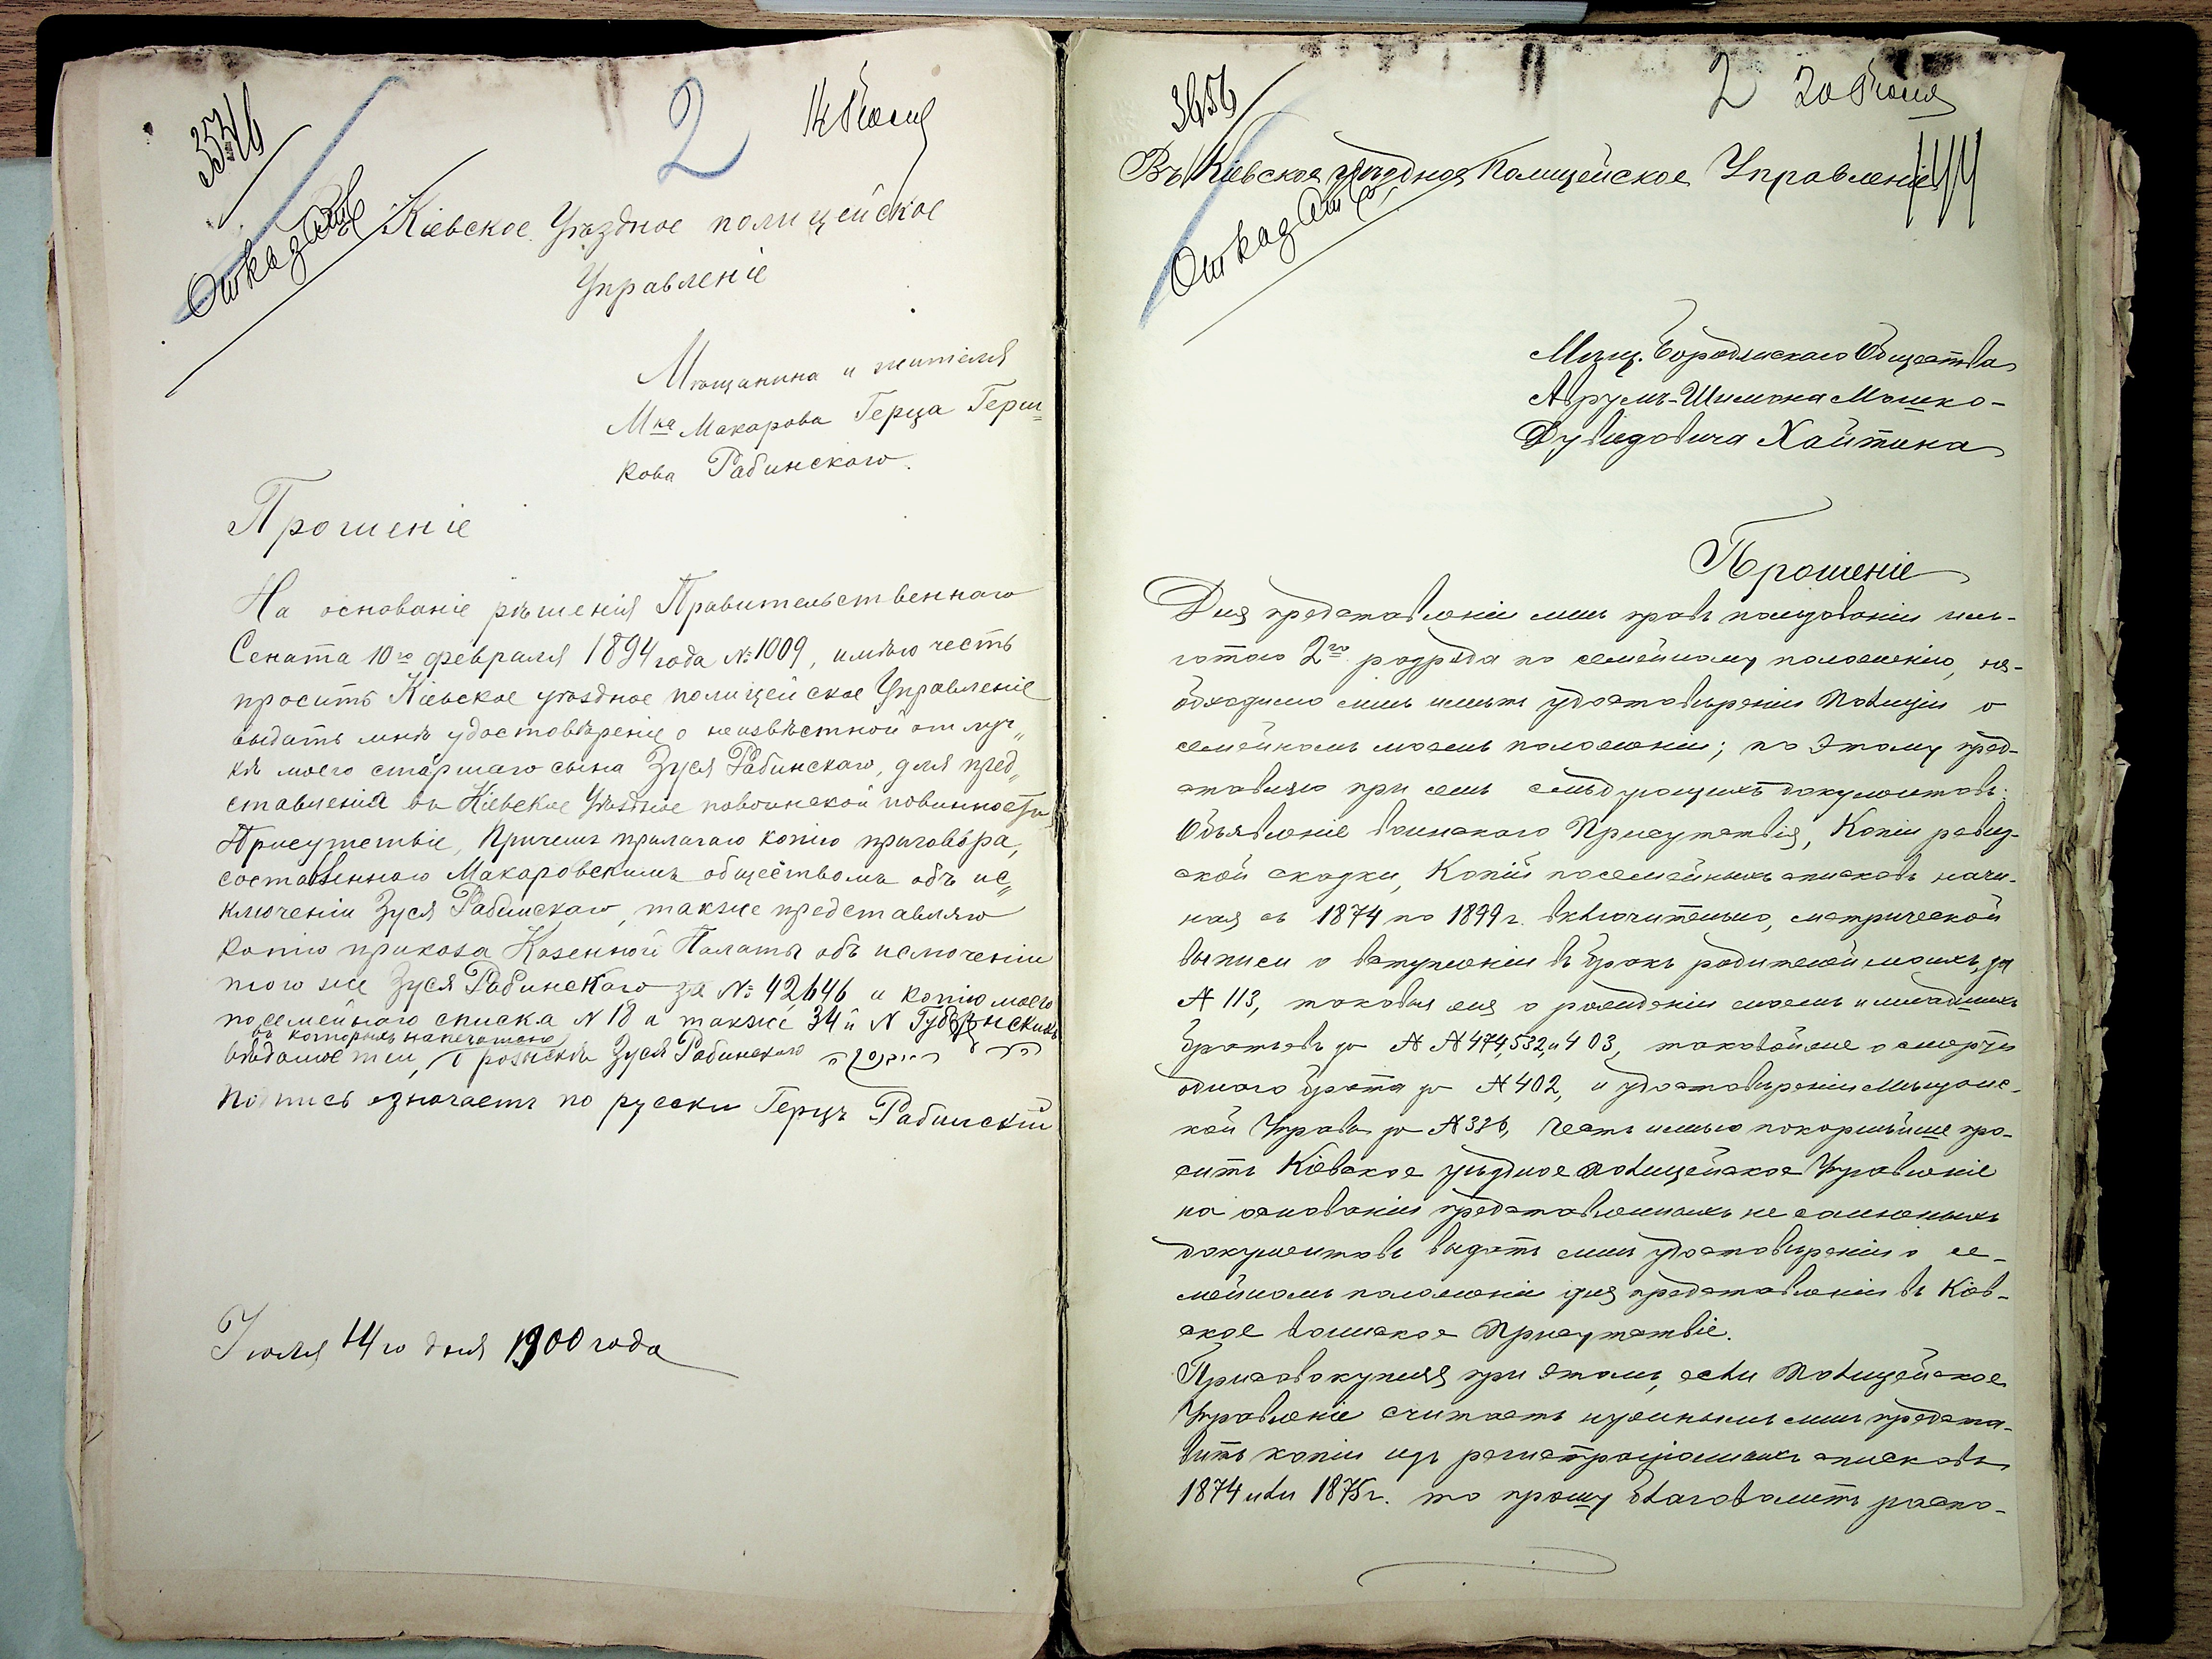 2
14 Іюля
Отказать
Кіевское Уѣздное полицейское
Управленіе
Мѣщанина и жителя
М-ка Макарова Герца Герш=
кова Рабинскаго.
Прошеніе
На основаніе рѣшенія Правительственнаго
Сената 10го февраля 1894 года № 1009, имѣю честь
просить Кіевское уѣздное полицейское Управленіе
выдать мнѣ удостовѣреніе о неизвѣстной отлуч„
кѣ моего старшаго сына Зуся Рабинскаго, для пред„
ставленія въ Кіевское Уѣздное повоинской повинности
Присутствіе, Причемъ прилагаю копію приговора,
составленнаго Макаровскимъ обществомъ объ ис„
ключеніи Зуся Рабинскаго, также представляю
копію приказа Казенной Палаты объ исключеніи
того же Зуся Рабинскаго за № 42,646 и копію моего
посемейнаго списка N 18 а также 34й N Губернскихъ
въ которыхъ напечатано
вѣдомостей, о розыскѣ Зуся Рабинскаго
Подпись означаетъ по русски Герцъ Рабинскій
Іюля 14го дня 1900 года
3656
2 20 Іюля
Въ Кіевское уѣздное Полицейское Управленіе
Отказать
Мѣщ. Бородянскаго Общества
Аврумъ-Шимона Мошко-
Дувидовича Хайтина
Прошеніе
Для представленія мнѣ правъ пользованія иль-
готою 2го разряда по семейному положенію, не-
обходимо мнѣ имѣть удостовѣреніе Полиціи о
семейномъ моемъ положеніи; по этому пред-
ставляю при семъ слѣдующихъ документовъ:
Объявленіе воинскаго Присутствія, Копіи ревиз-
ской сказки, Копій посемейныхъ списковъ начи-
ная съ 1874 по 1899 г. включительно, метрической
выписи о вступленіи въ бракъ родителей моихъ, за
№ 113, таковыя же о рожденіи моемъ и младшихъ
братьевъ за № № 474, 532, и 403, таковой же о смерти
одного брата за № 402, и удостовѣреніи Мѣщанс-
кой Управы за № 386, честь имѣю покорнѣйше про-
сить Кіевское уѣздное полицейское Управленіе
на основаніи представленныхъ не сложныхъ
документовъ выдать мнѣ удостовѣреніи о се-
мейномъ положеніи для представленія въ Кіев-
ское воинское Присутствіе.
Присовокупляя при этомъ, если Полицейское
Управленіе считаетъ нужнымъ мнѣ предста-
вить копіи изъ регистраціонныхъ списковъ
1874 или 1875 г. то прошу благоволить распо-